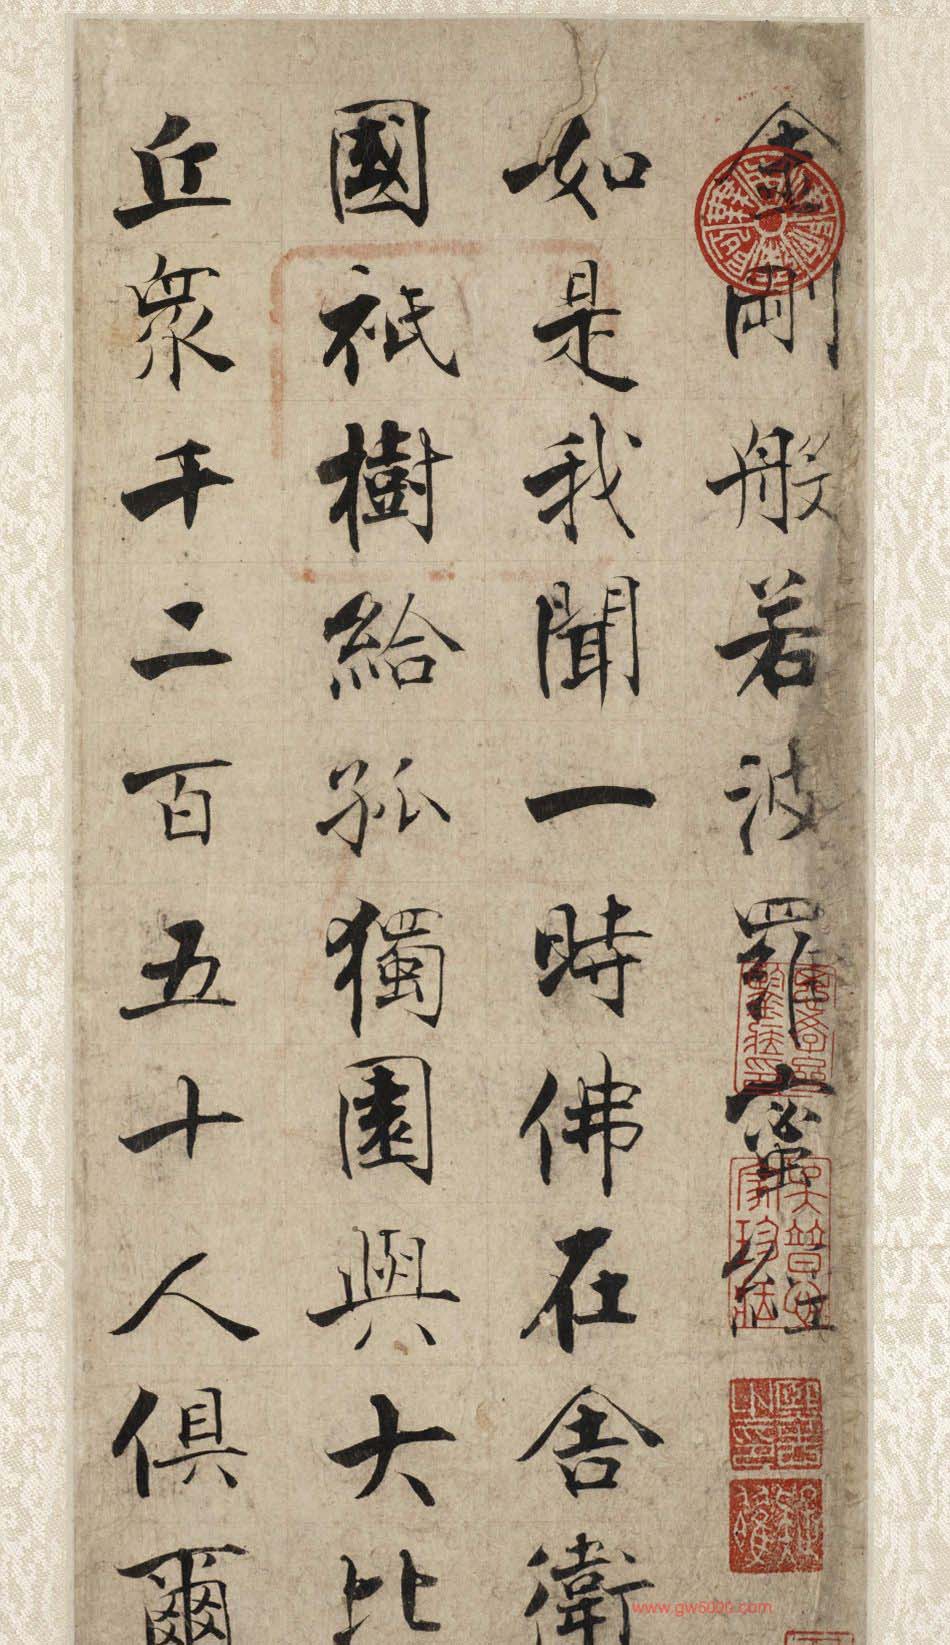 金剛般若波羅蜜經
如是我聞一時佛在舍衛
國祇樹給孤獨園與大比
丘衆千二百五十人俱爾
www.gw5000.com